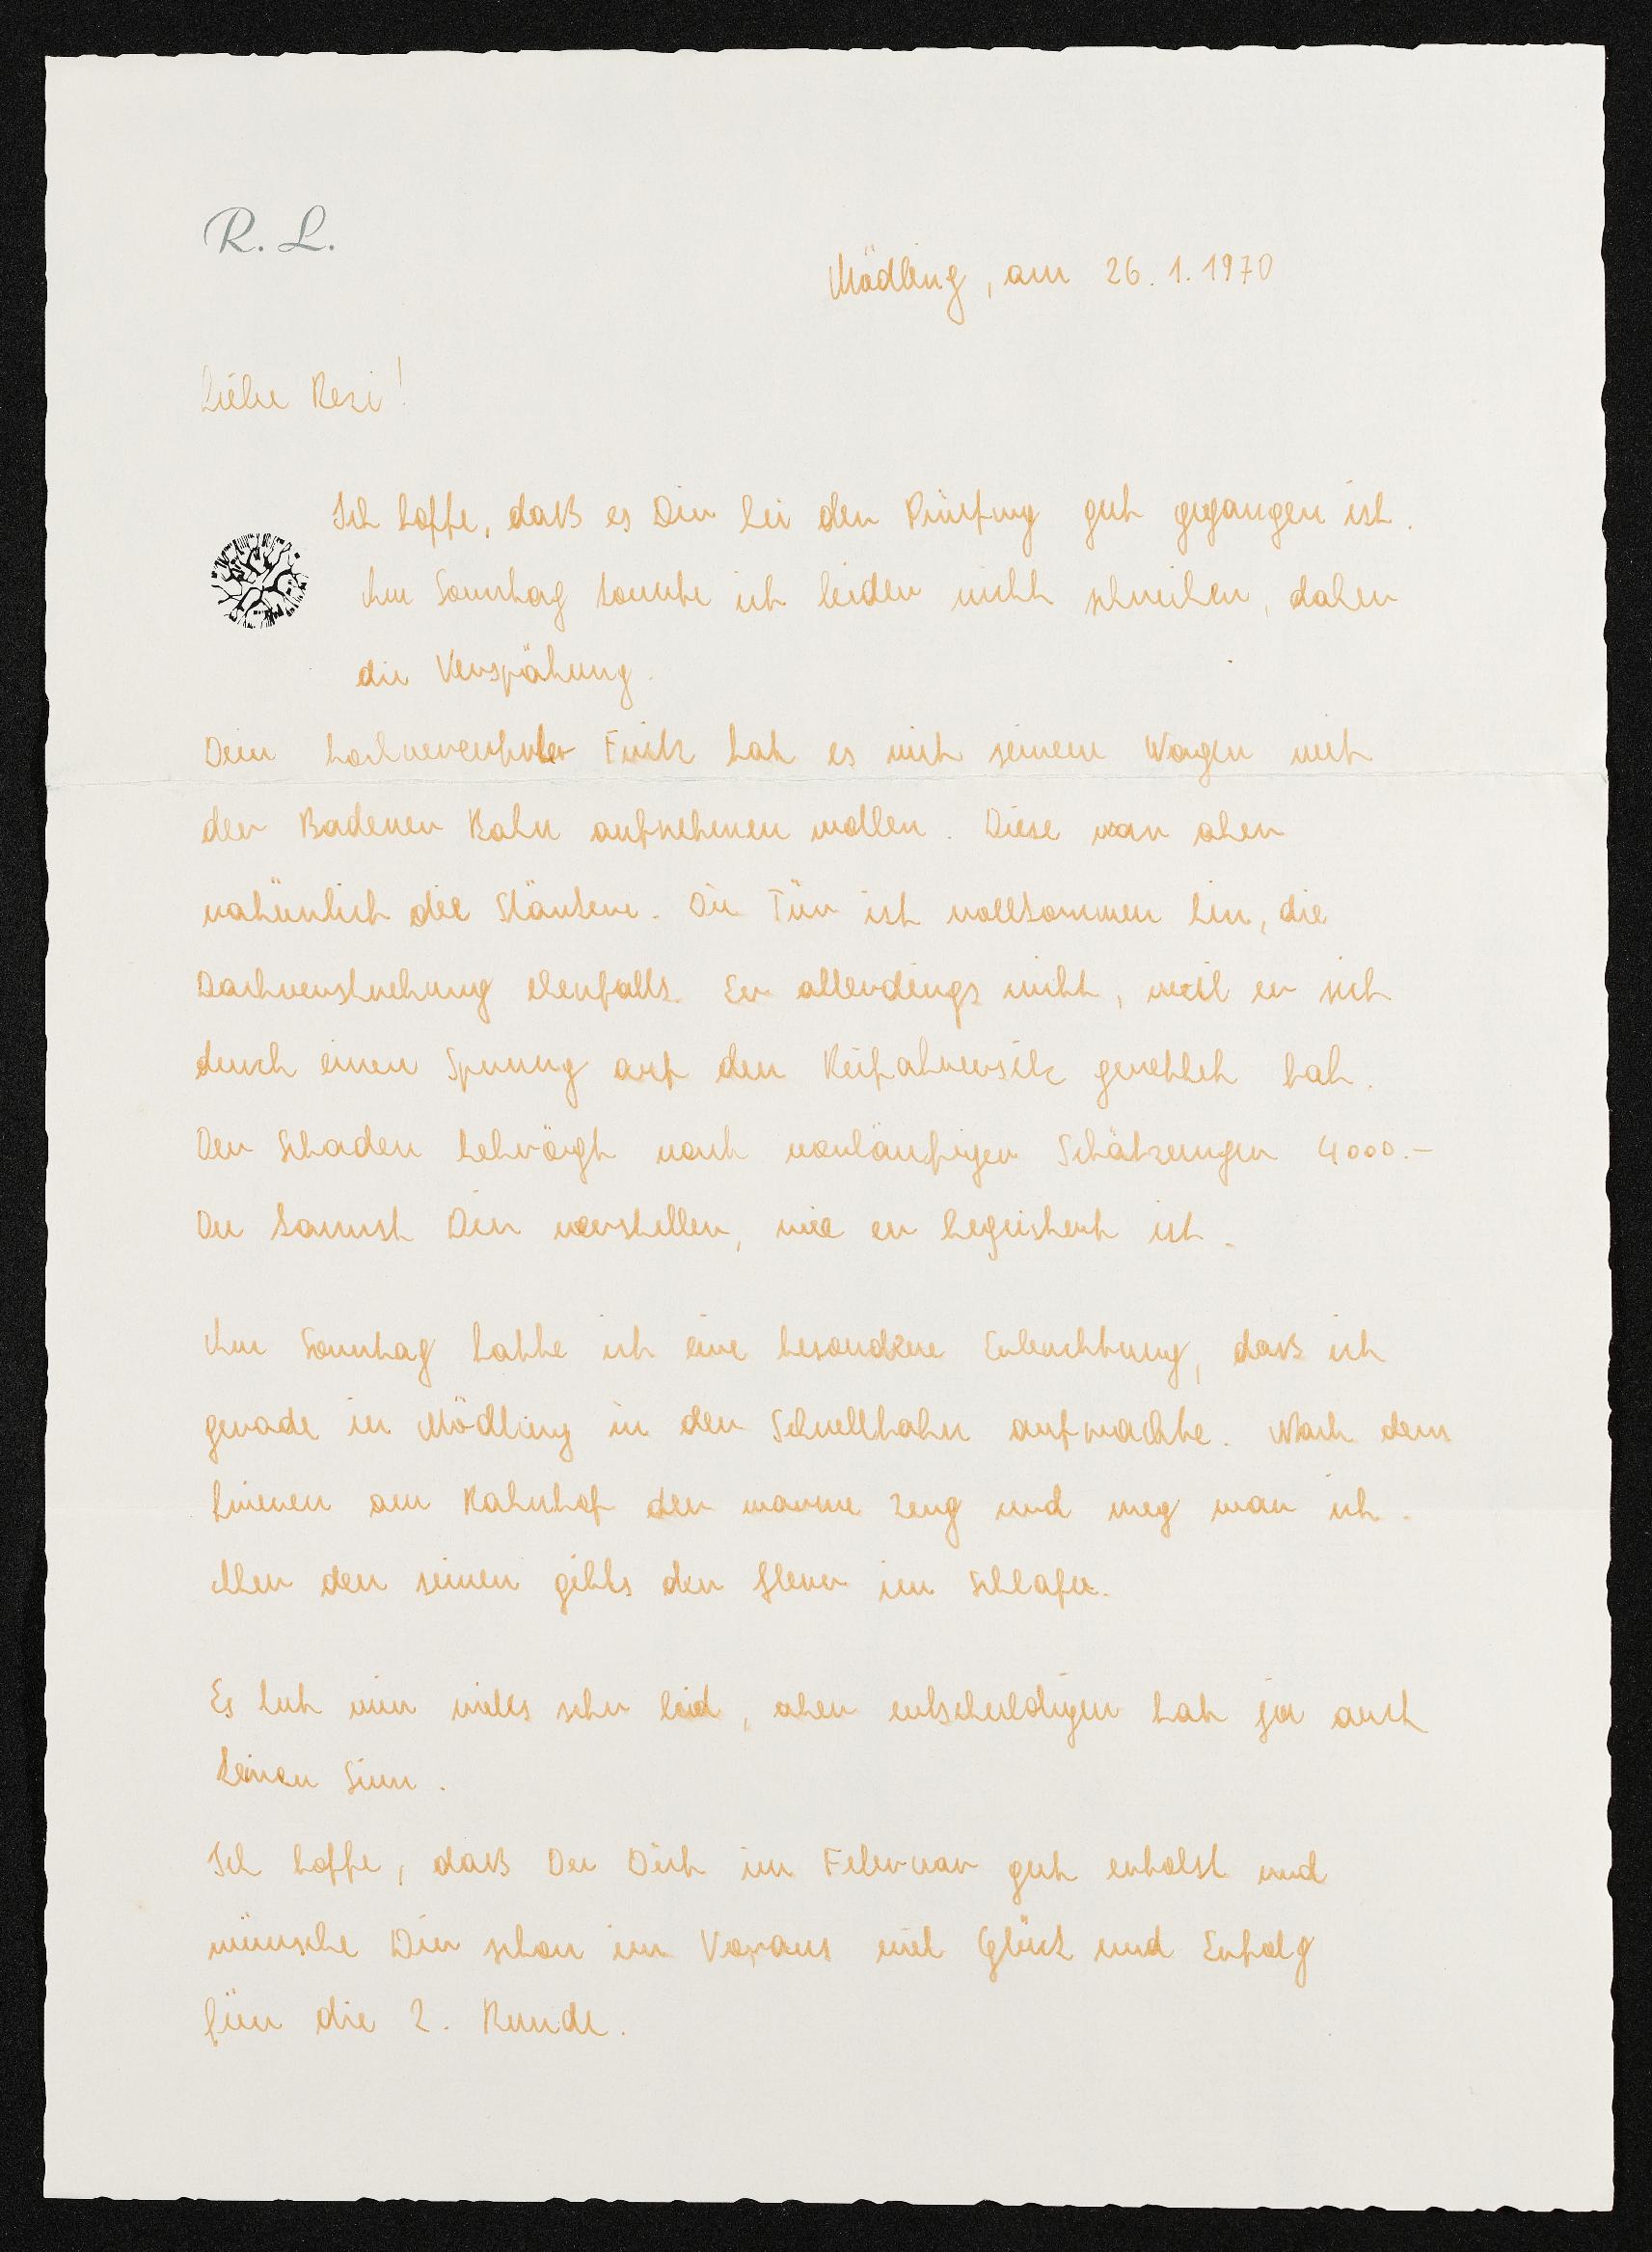 R. L.
Mödling, am 26. 1. 1970
Liebe Resi!
Ich hoffe, daß es Dir bei der Prüfung gut gegangen ist.
Am Sonntag konnte ich leider nicht schreiben, daher
die Verspätung.
Dein hochverehrter Fritz hat es mit seinem Wagen mit
der Badener Bahn aufnehmen wollen. Diese war aber
natürlich die Stärkere. Die Tür ist vollkommen hin, die
Dachverstrebung ebenfalls. Er allerdings nicht, weil er sich
durch einen Sprung auf den Beifahrersitz gerettet hat.
Der Schaden beträgt nach vorläufigen Schätzungen 4000.-
Du kannst Dir vorstellen, wie er begeistert ist.
Am Sonntag hatte ich eine besondere Erleuchtung, daß ich
gerade in Mödling in der Schnellbahn aufwachte. Nach dem
frieren am Bahnhof der warme Zug und weg war ich.
Aber den seinen gibts der Herr im Schlafe.
Es tut mir vieles sehr leid, aber entschuldigen hat ja auch
keinen Sinn.
Ich hoffe, daß Du Dich im Februar gut erholst und
wünsche Dir schon im Voraus viel Glück und Erfolg
für die 2. Runde.